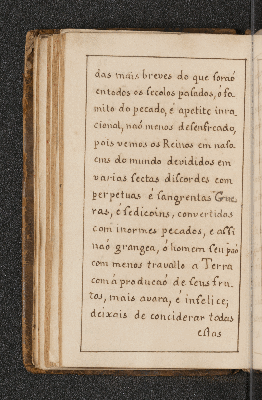 das mais breves do que foraõ
entodos os secolos pasados, ó fa
mito do pecado, é apetite inra
cional, naõ menos desenfreado,
pois vemos os Reinos em nasa
ens do mundo devididos em
varias sectas discordes com
perpetuas é sangrentas Gue
ras, é sedicoins, convertidos
com inormes pecados, e assi
naõ grangea, ó homem seu paõ
com menos travallo a Terra
com á producaõ de seus fru
tos, mais avara, é infelice;
deixais de conciderar todas
estas